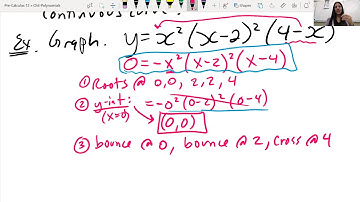 Pre-Calculus 12 - Ch4 Polynomials
continuous
Ex. Graph. y=x²(x-2)²(4-x)
0=-x²(x-2)²(x-4)
① Roots @ 0,0, 2,2, 4
② y-int: =-0²(0-2)²(0-4)
(x=0) (0,0)
③ bounce @ 0, bounce @ 2, cross @ 4